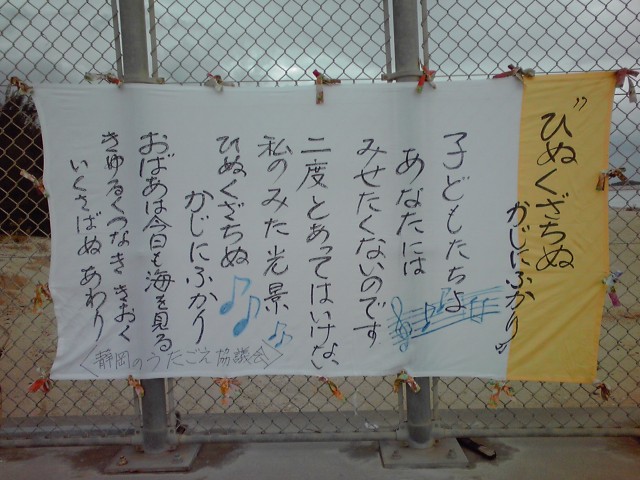 "ひぬくざちぬ
かじにふかり"
子どもたちよ
あなたには
みせたくないのです
二度とあってはいけない
私のみた光景
ひぬくざちぬ
かじにふかり
おばあは今日も海を見る
きゅるくつなき きおく
いくさばぬ あわり
〈静岡のうたごえ協議会〉